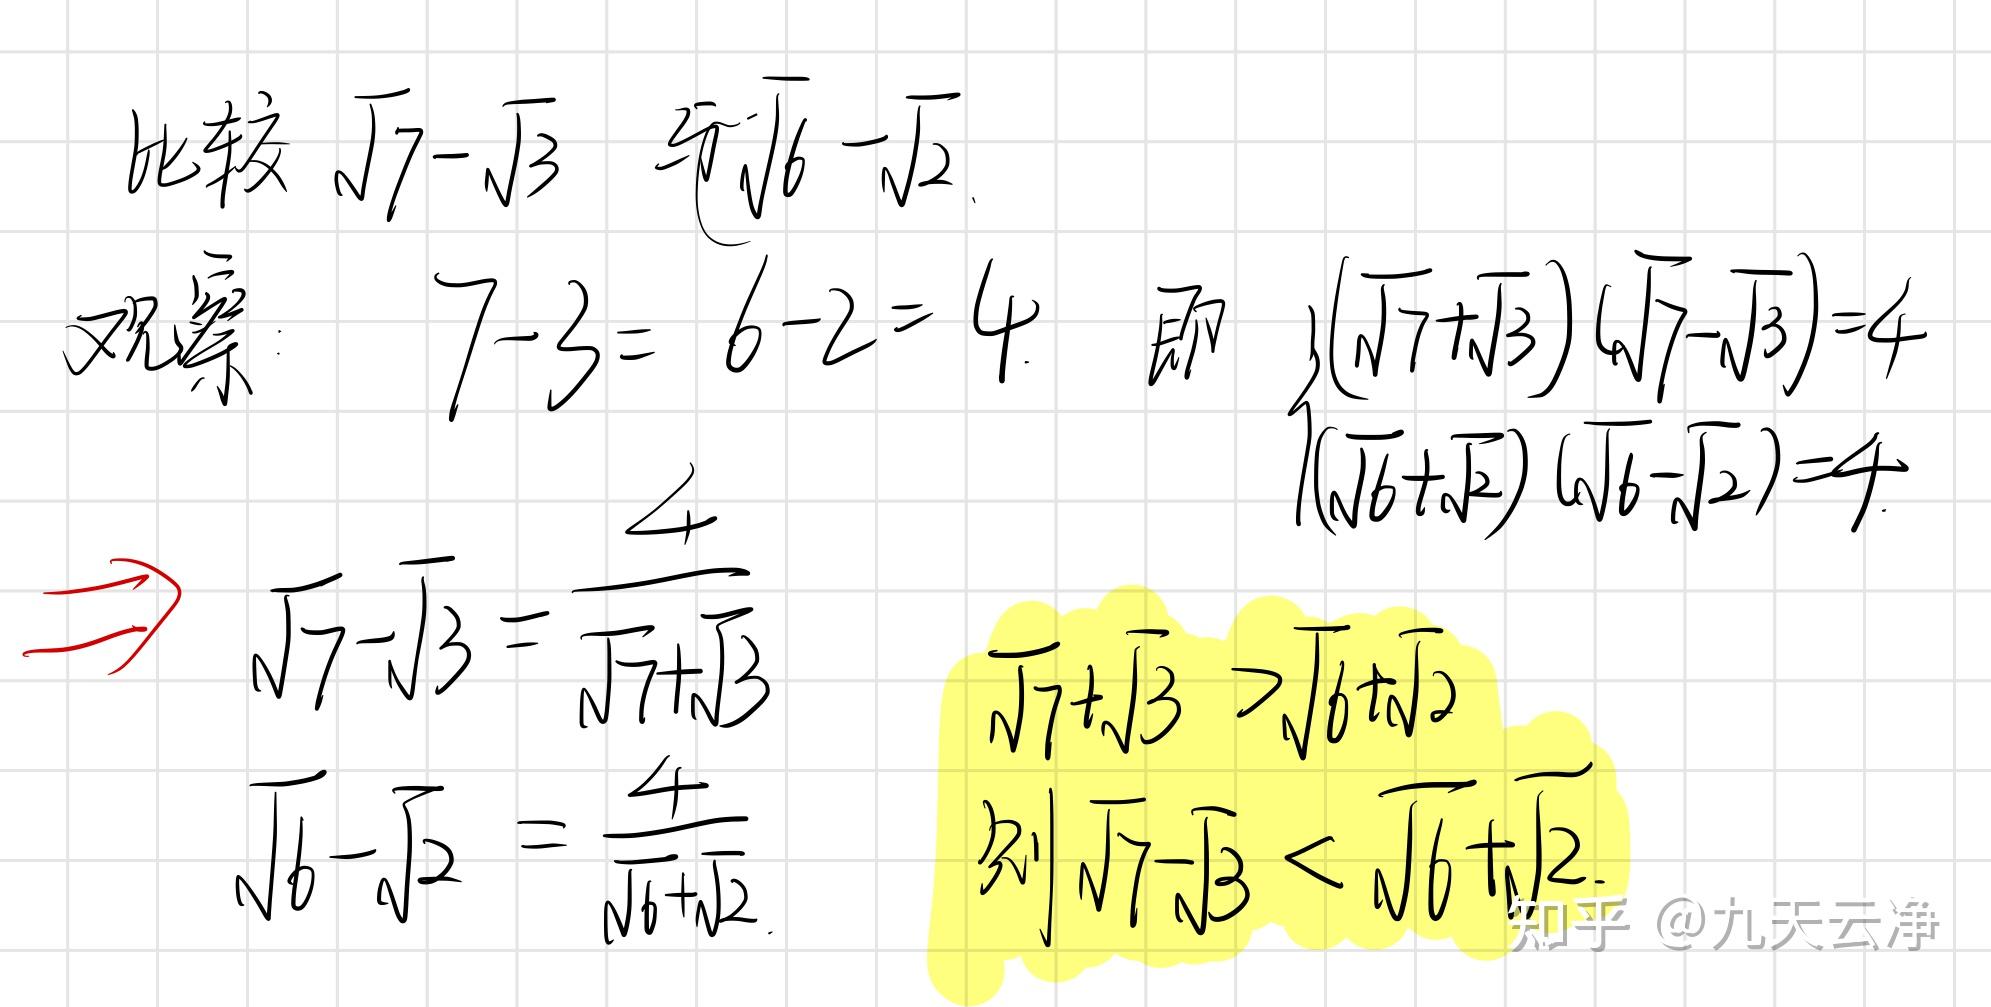 比较 √7-√3 与√6-√2.
观察: 7-3=6-2=4. 即 {(√7+√3)(√7-√3)=4
(√6+√2)(√6-√2)=4.
⇒ √7-√3=4/(√7+√3)
√6-√2=4/(√6+√2).
√7+√3>√6+√2
则√7-√3<√6+√2.
知乎 @九天云净